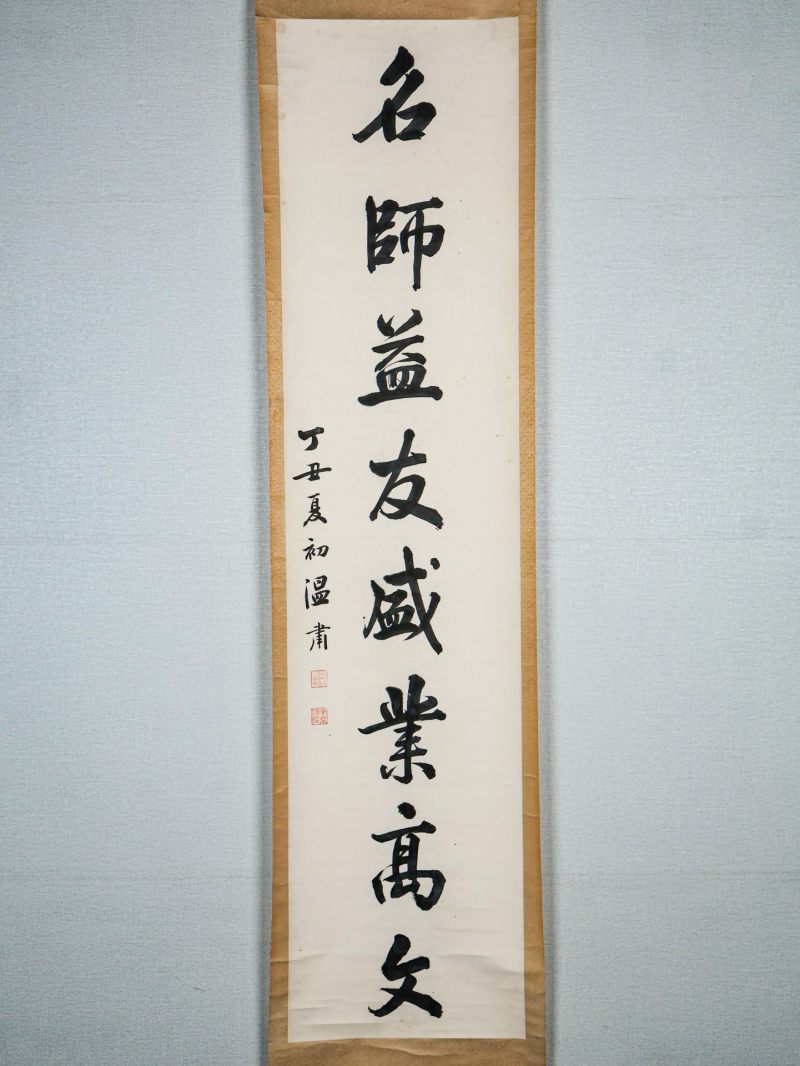 名師益友盛業高文
丁丑夏初溫肅